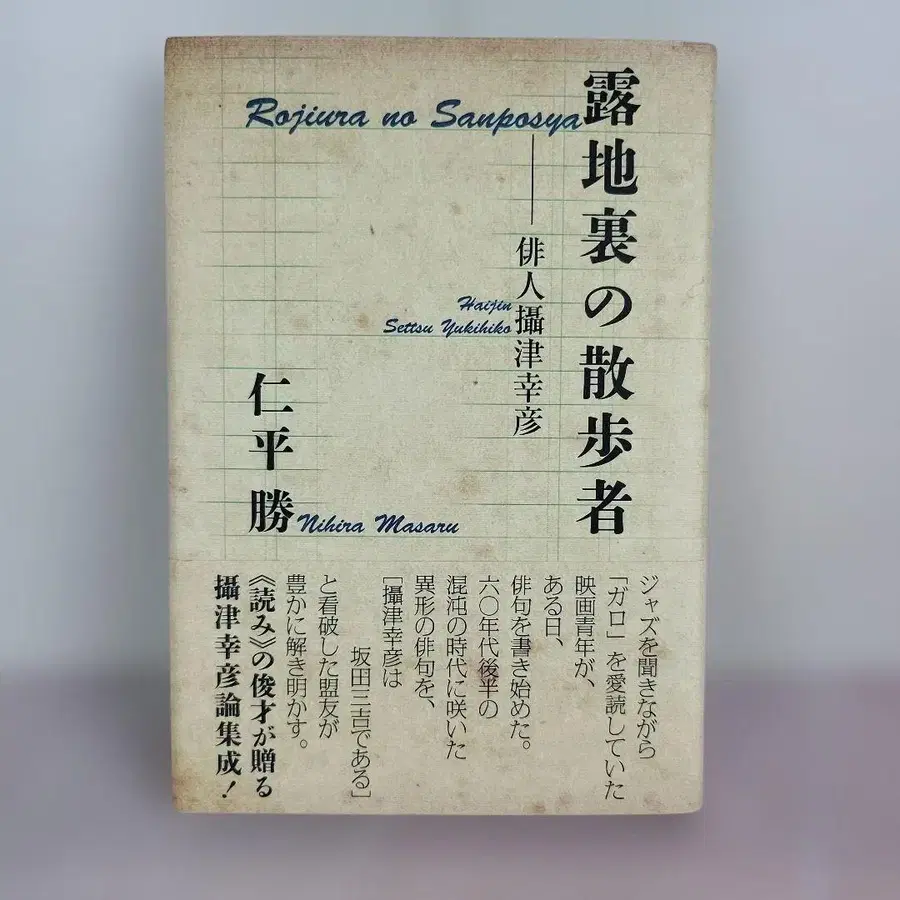 露地裏の散歩者
Rojiura no Sanposya
――俳人攝津幸彦
Haijin
Settsu Yukihiko
仁平勝
Nihira Masaru
ジャズを聞きながら
「ガロ」を愛読していた
映画青年が、
ある日、
俳句を書き始めた。
六〇年代後半の
混沌の時代に咲いた
異形の俳句を、
[攝津幸彦は
坂田三吉である]
と看破した盟友が
豊かに解き明かす。
《読み》の俊才が贈る
攝津幸彦論集成!